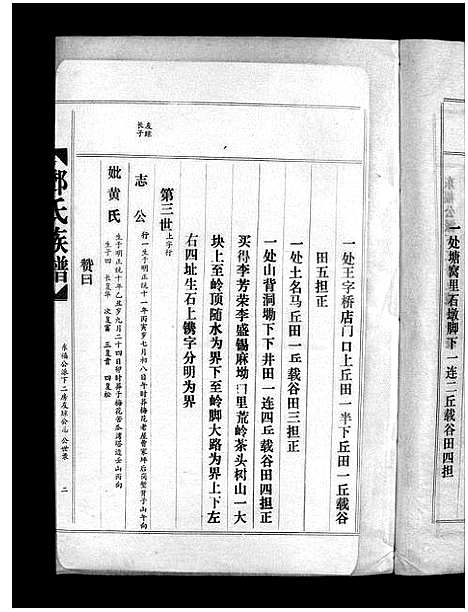 一处塘窝里石墩脚下一连二丘载谷田四担
一处王字桥店门口上丘田一半下丘田一丘载谷
田五担正
一处土名马丘田一丘载谷田三担正
一处山背洞塅下下井田一连四丘载谷田四担正
买得李芳荣李盛锡麻坳口里荒岭茶头树山一大
块上至岭顶随水为界下至岭脚大路为界上下左
右四址生石上镌字分明为界
第三世上字行
友球
长子
志公
行一生于明正统十一年丙寅岁七月初八日午时葬梅花老屋曹家坪后岗堑背子山午向
妣黄氏
生于明正统十年乙丑岁九月二十四日卯时葬于梅花苦瓜湾塔边壬山丙向
生子四 长复华 次复富 三复贵 四复松
赞曰
氏族谱
东福公派下二房友球公 公世录
二